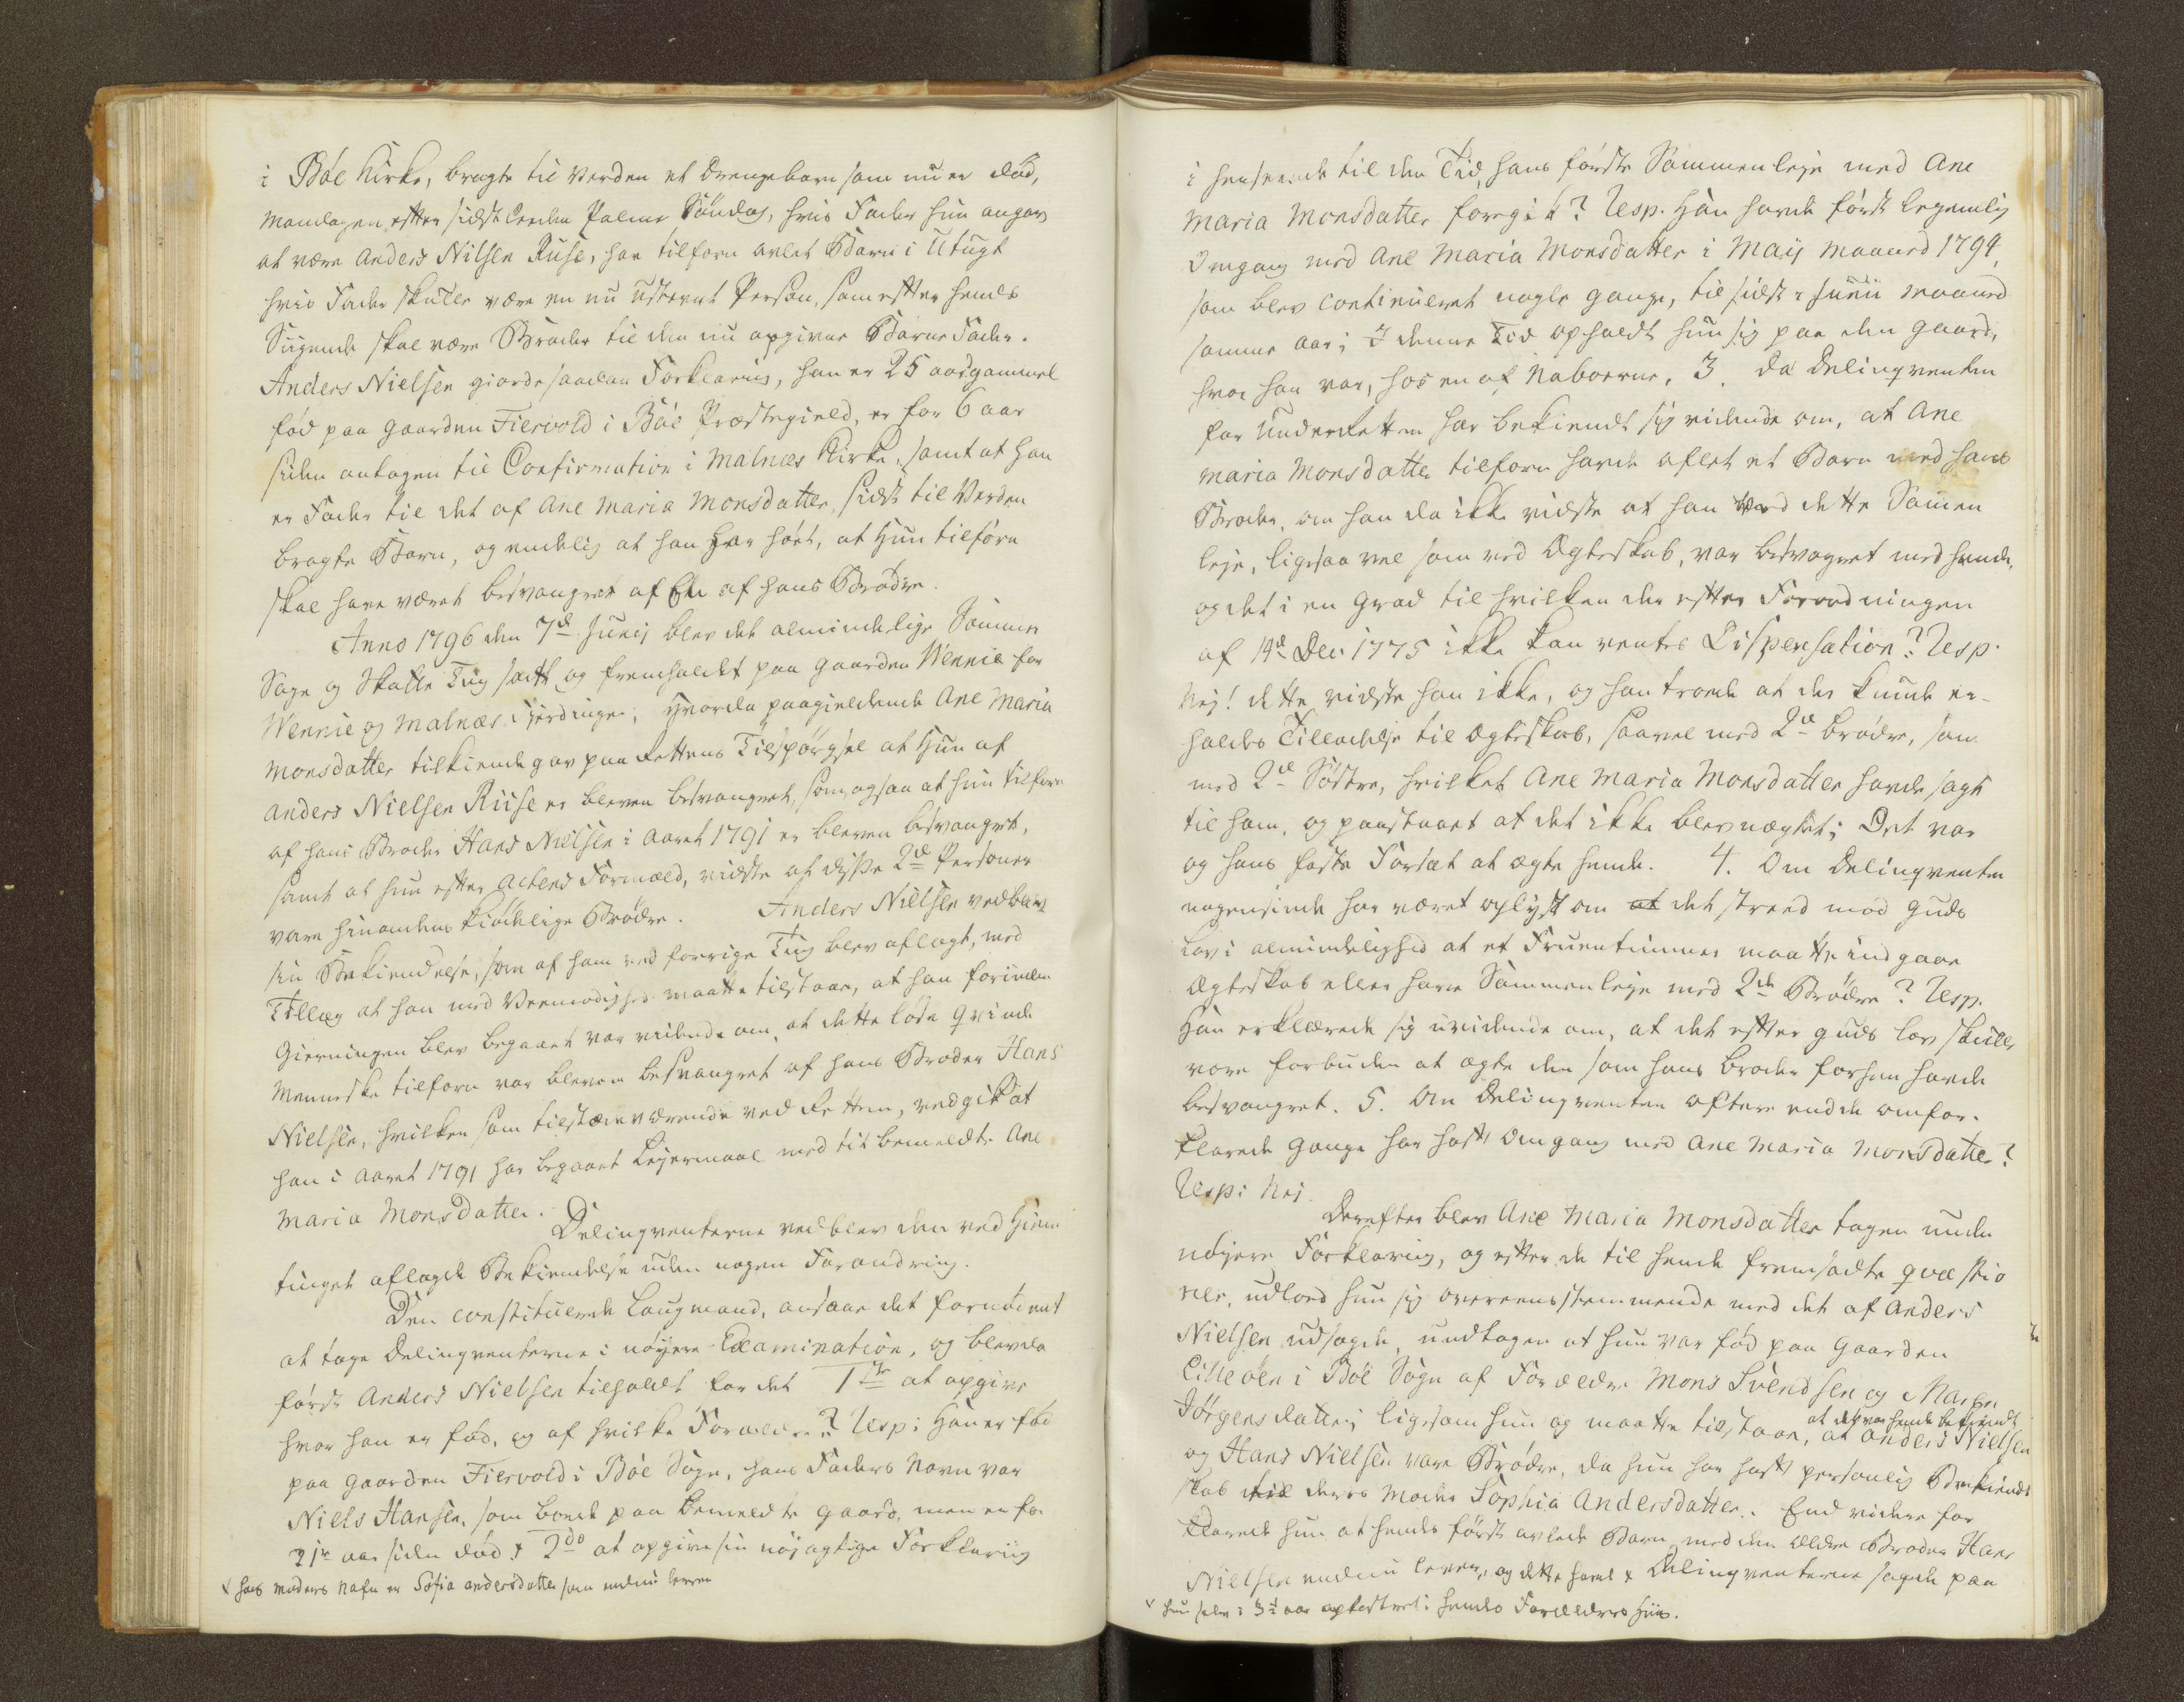 i Bøe Kirke, bragte til Verden et Drengebarn som nu er død,
Mandagen efter sidstleeden Palme Søndag, hvis Fader hun angav
at være Anders Nilsen Ruse, har tilforn avlet Barn i Utugt
hvis Fader skulle være en nu Person, som efter hendes
Sigende skal være Broder til den nu opgivne Barne Fader.
Anders Nielsen giorde saadan Forklaring, han er 25 aar gammel
fød paa Gaarden Fiervold i Bøe Præstegield, er for 6 aar
siden antagen til Confirmation i Malnæs Kirke, samt at han
er Fader til det af Ane Maria Monsdatter, sidst til Verden
bragte Barn, og endelig at han har hørt, at Hun tilforn
skal have været besvangret af En af hans Brødre.
Anno 1796 den 7de Junij blev det almindelige Sommer
Sage og Skatte Ting satt og fremholdt paa Gaarden Wennie for
Wennie og Malnæs Fierdinger, hvorda paagieldende Ane Maria
Monsdatter tilkiende gav paa Rettens Tilspørgsel at Hun af
Anders Nielsen Ruse er bleven besvangret, som ogsaa at hun tilforn
af hans Broder Hans Nielsen i Aaret 1791 er bleven besvangret,
samt at hun efter Actens Formæld, vidste at disse 2de Personer
vare hinandens kiødelige Brødre. Anders Nielsen vedblev
sin Bekiendelse, som af ham ved forrige Ting blev aflagt, med
Tillæg at han med Veemodighed maatte tilstaae, at han forinden
Gierningen blev begaaet var vidende om, at dette løse Qvinde
Menneske tilforn var bleven besvangret af hans Broder Hans
Nielsen, hvilken som tilstæeværende ved Retten, vedgik at
han i Aaret 1791 har begaaet Leyermaal med titbemeldte Ane
Maria Monsdatter.
Delinqventerne vedblev den ved Hiem
tinget aflagde Bekiendelse uden nogen Forandring.
Den constituerede Laugmand, ansaae det fornødent
at tage Delinqventerne i nøyere Examination, og blev da
først Anders Nielsen tilholdt for det 1te at opgive
hvor han er fød, og af hvilke Forældre? Resp: Han er fød
paa Gaarden Fiervold i Bøe Sogn, hans Faders Navn var
Niels Hansen, som boede paa bemeldte Gaard, men er for
21de aar siden død x 2do at opgive sin nøjagtige Forklaring
x hans Moders Nafn er Sofia Andersdatter som endnu lever
i henseende til den Tid, hans første Sammenleje med Ane
Maria Monsdatter foregik? Resp. Han havde først legemlig
Omgang med Ane Maria Monsdatter i Maij Maaned 1794,
som blev continueret nogle Gange, til sidst i Junii Maaned
samme Aar; I denne Tid opholdt hun sig paa den Gaard,
hvor han var, hos en af Naboerne. 3. Da Delinqventen
for Underretten har bekiendt sig vidende om, at Ane
Maria Monsdatter tilforn havde aflet et Barn med hans
Broder, om han da ikke vidste at han ved dette Samen
leje, ligesaa vel som ved Ægteskab, var besvogret med hende,
og det i en Grad til hvilken der efter Forordningen
af 14de Dec: 1775 ikke kan ventes Dispensation? Resp.
Nej! dette vidste han ikke, og han troede at der kunde er-
holdes Tilladelse til Ægteskab, saavel med 2de Brødre, som
med 2de Søstre, hvilket Ane Maria Monsdatter havde sagt
til ham, og paastaaet at det ikke blev nægtet; Det var
og hans faste Forsæt at ægte hende. 4. Om Delinqventen
nogensinde har været oplyst om at det streed mod Guds
Lov i almindelighed at et Fruentimmer maatte indgaae
Ægteskab eller have Sammenleje med 2de Brødre? Resp.
Han erklærede sig uvidende om, at det efter Guds Lov skulle
være forbuden at ægte den som hans Broder forhen havde
besvangret. 5. Om Delinqventen oftere end de omfor-
klarede Gange har haft Omgang med Ane Maria Monsdatter?
Resp: Nej.
Derefter blev Ane Maria Monsdatter tagen under
nøjere Forklaring, og efter de til hende fremsadte qvæstio
ner, udlod hun sig overeensstemmende med det af Anders
Nielsen udsagde, undtagen at hun var fød paa Gaarden
Lilleøen i Bøe Sogn af Forældre Mons Svendsen og Maren
Jørgensdatter; ligesom hun og maatte tilstaae, at det var hende bekiendt at Anders Nielsen
og Hans Nielsen vare Brødre, da hun har haft personlig Bekiendt
skab til deres Moder Sophia Andersdatter. End videre for
klarede hun at hendes først avlede Barn med den ældre Broder Hans
Nielsen endnu lever, og dette havde x Delinqventerne sagde paa
x hun selv i 3de aar opfostret i hendes Forældres Huus.